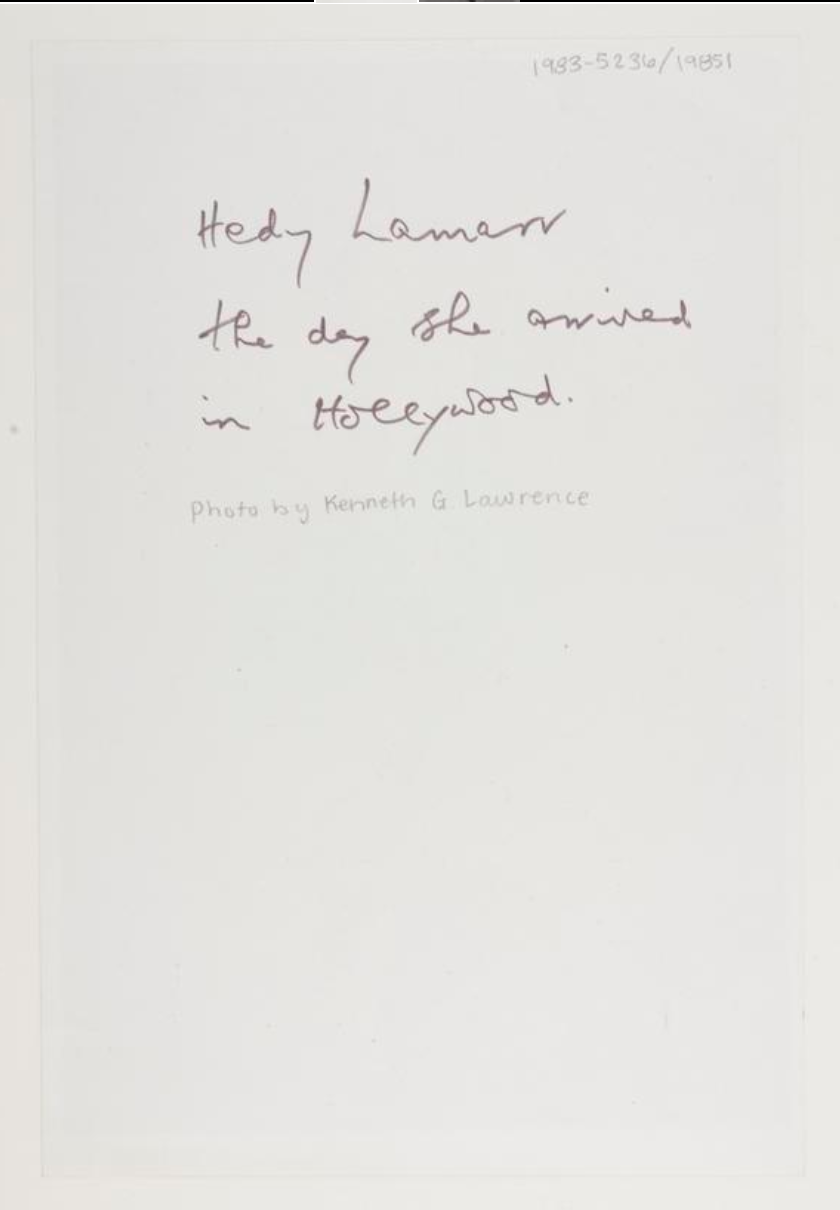 1983-5236/19851
Hedy Lamarr
the day she arrived
in Hollywood.
Photo by Kenneth G. Lawrence